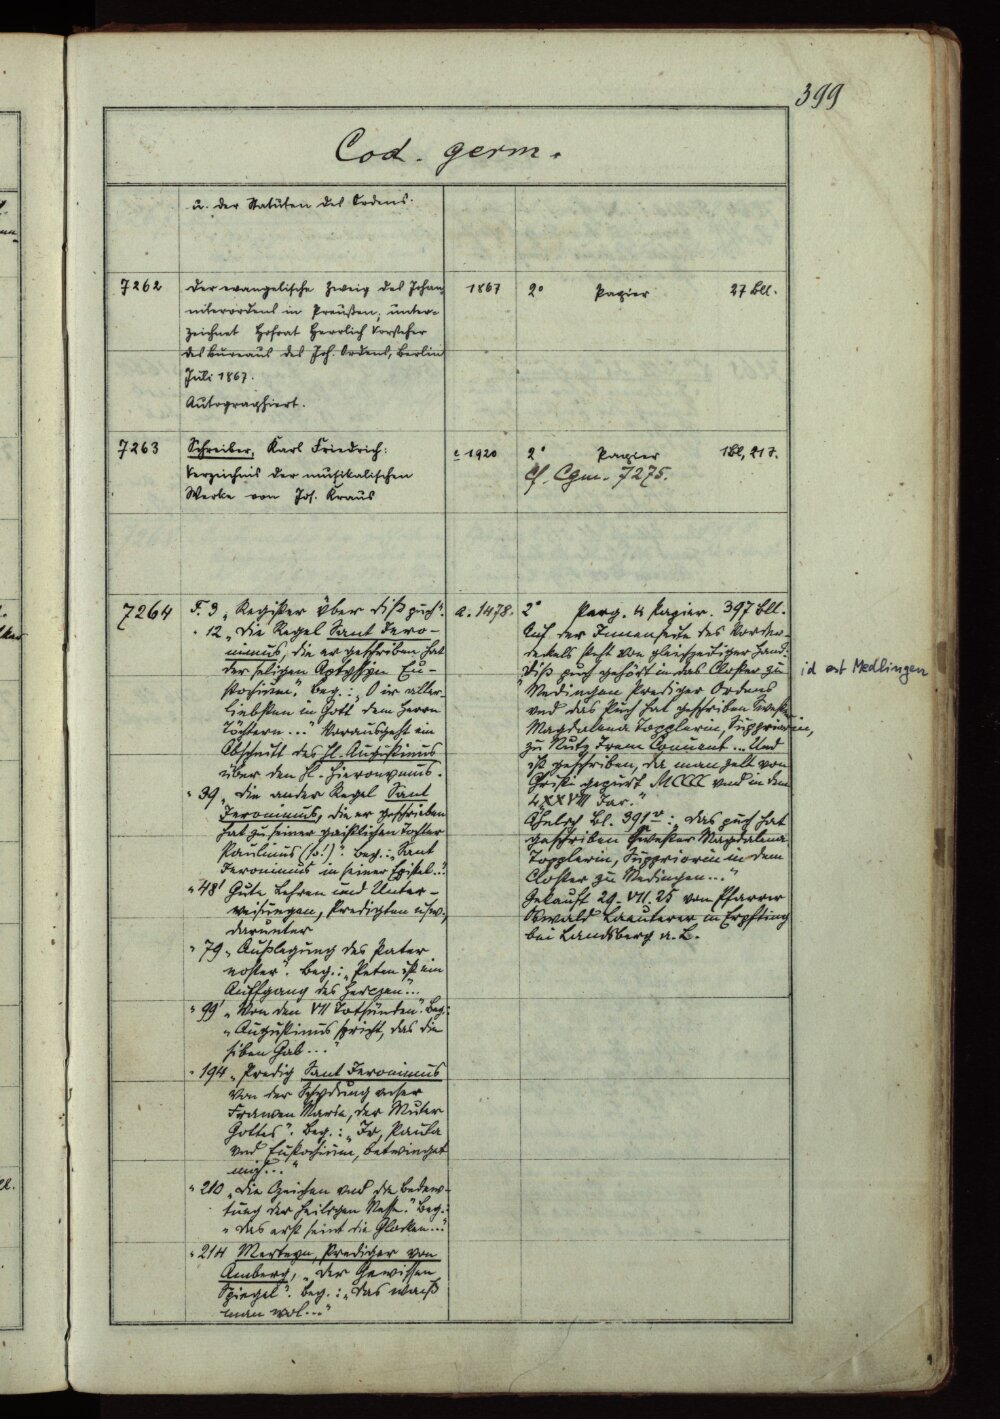 399
Cod. germ.
u. der Statuten des Ordens.
7262
Der evangelische Zweig des Johan-
niterordens in Preußen, unter-
zeichnet Hofrat Herrlich Vorsteher
des Bureaus des Joh. Ordens, Berlin
Juli 1867.
Autographiert.
1867
2° Papier 27 Bll.
7263
Schreiber, Karl Friedrich:
Verzeichnis der musikalischen
Werke von Jos. Kraus
c 1920
2° Papier 1 Bl, 21 S.
Cf. Cgm. 7275.
7264
F. 3 „Register über diß puch".
" 12 „Die Regel Sant Jero-
nimus, die er geschriben hat
der seligen Aptyssyn Eu-
stochium". Beg.: „O ir aller
liebsten in Gott dem Herrn
Töchtern ..." Vorausgeht ein
Abschnitt des hl. Augustinus
über den hl. Hieronymus.
" 39 „Die ander Regel Sant
Jeronimus, die er geschrieben
hat zu seiner gaistlichen Tochter
Paulinus (so!)". Beg.: „Sant
Jeronimus in seiner Epistel..."
" 48' Gute Lehren und Unter-
weisungen, Predigten usw.,
darunter
" 79 „Außlegung des Pater
noster". Beg.: „Peten ist ein
Auffgang des Herczen"...
" 99' „Von den VII Totsünden". Beg.:
„Augustinus spricht, das die
siben Gab..."
" 194 „Predig Sant Jeronimus
von der Schydung unser
Frawen Maria, der Muter
Gottes". Beg.: „Ir, Paula
und Eustochium, betwinget
mich..."
" 210 „Die Zeichen und die Bedew-
tung der heiligen Messe". Beg.:
„Das erst seint die Glocken..."
" 214 Merteyn, Prediger von
Amberg, „Der Gewissen
Spiegel". Beg.: „Das waiß
man wol..."
a. 1478.
2° Perg. u. Papier. 397 Bll.
Auf der Innenseite des Vorder-
deckels steht von gleichzeitiger Hand:
„Diß puch gehört in das Closter zu
Medingen Prediger Ordens
und das Puch hat geschriben Swester
Magdalena Topplerin, Suppriorin,
zu Nutz Irem Convent ... Und
ist geschriben, da man zelt von
Cristi gepurt MCCCC und in dem
LXXVIII Jar."
Ähnlich Bl. 391v: „Das puch hat
geschriben Swester Magdalena
Topplerin, Suppriorin in dem
Closter zu Medingen..."
Gekauft 29. VII. 25 von Pfarrer
Oswald Lauterer in Erpfting
bei Landsberg a. L.
id est Medlingen